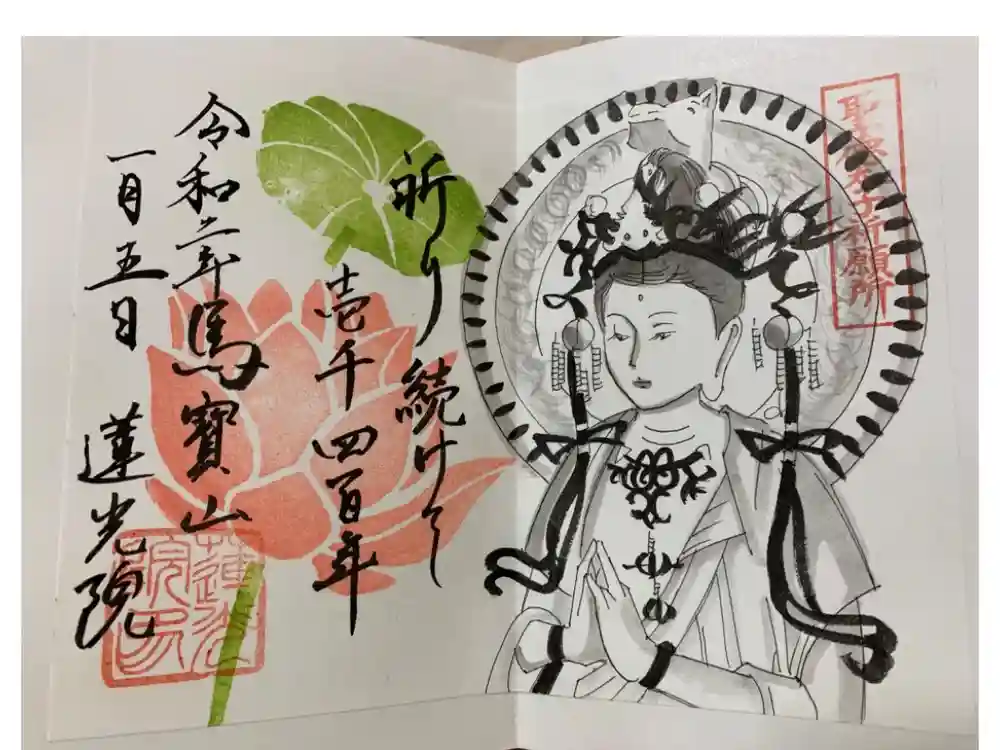 聖徳太子祈願所
祈り続けて
壱千四百年
令和二年馬寶山
一月五日 蓮光院